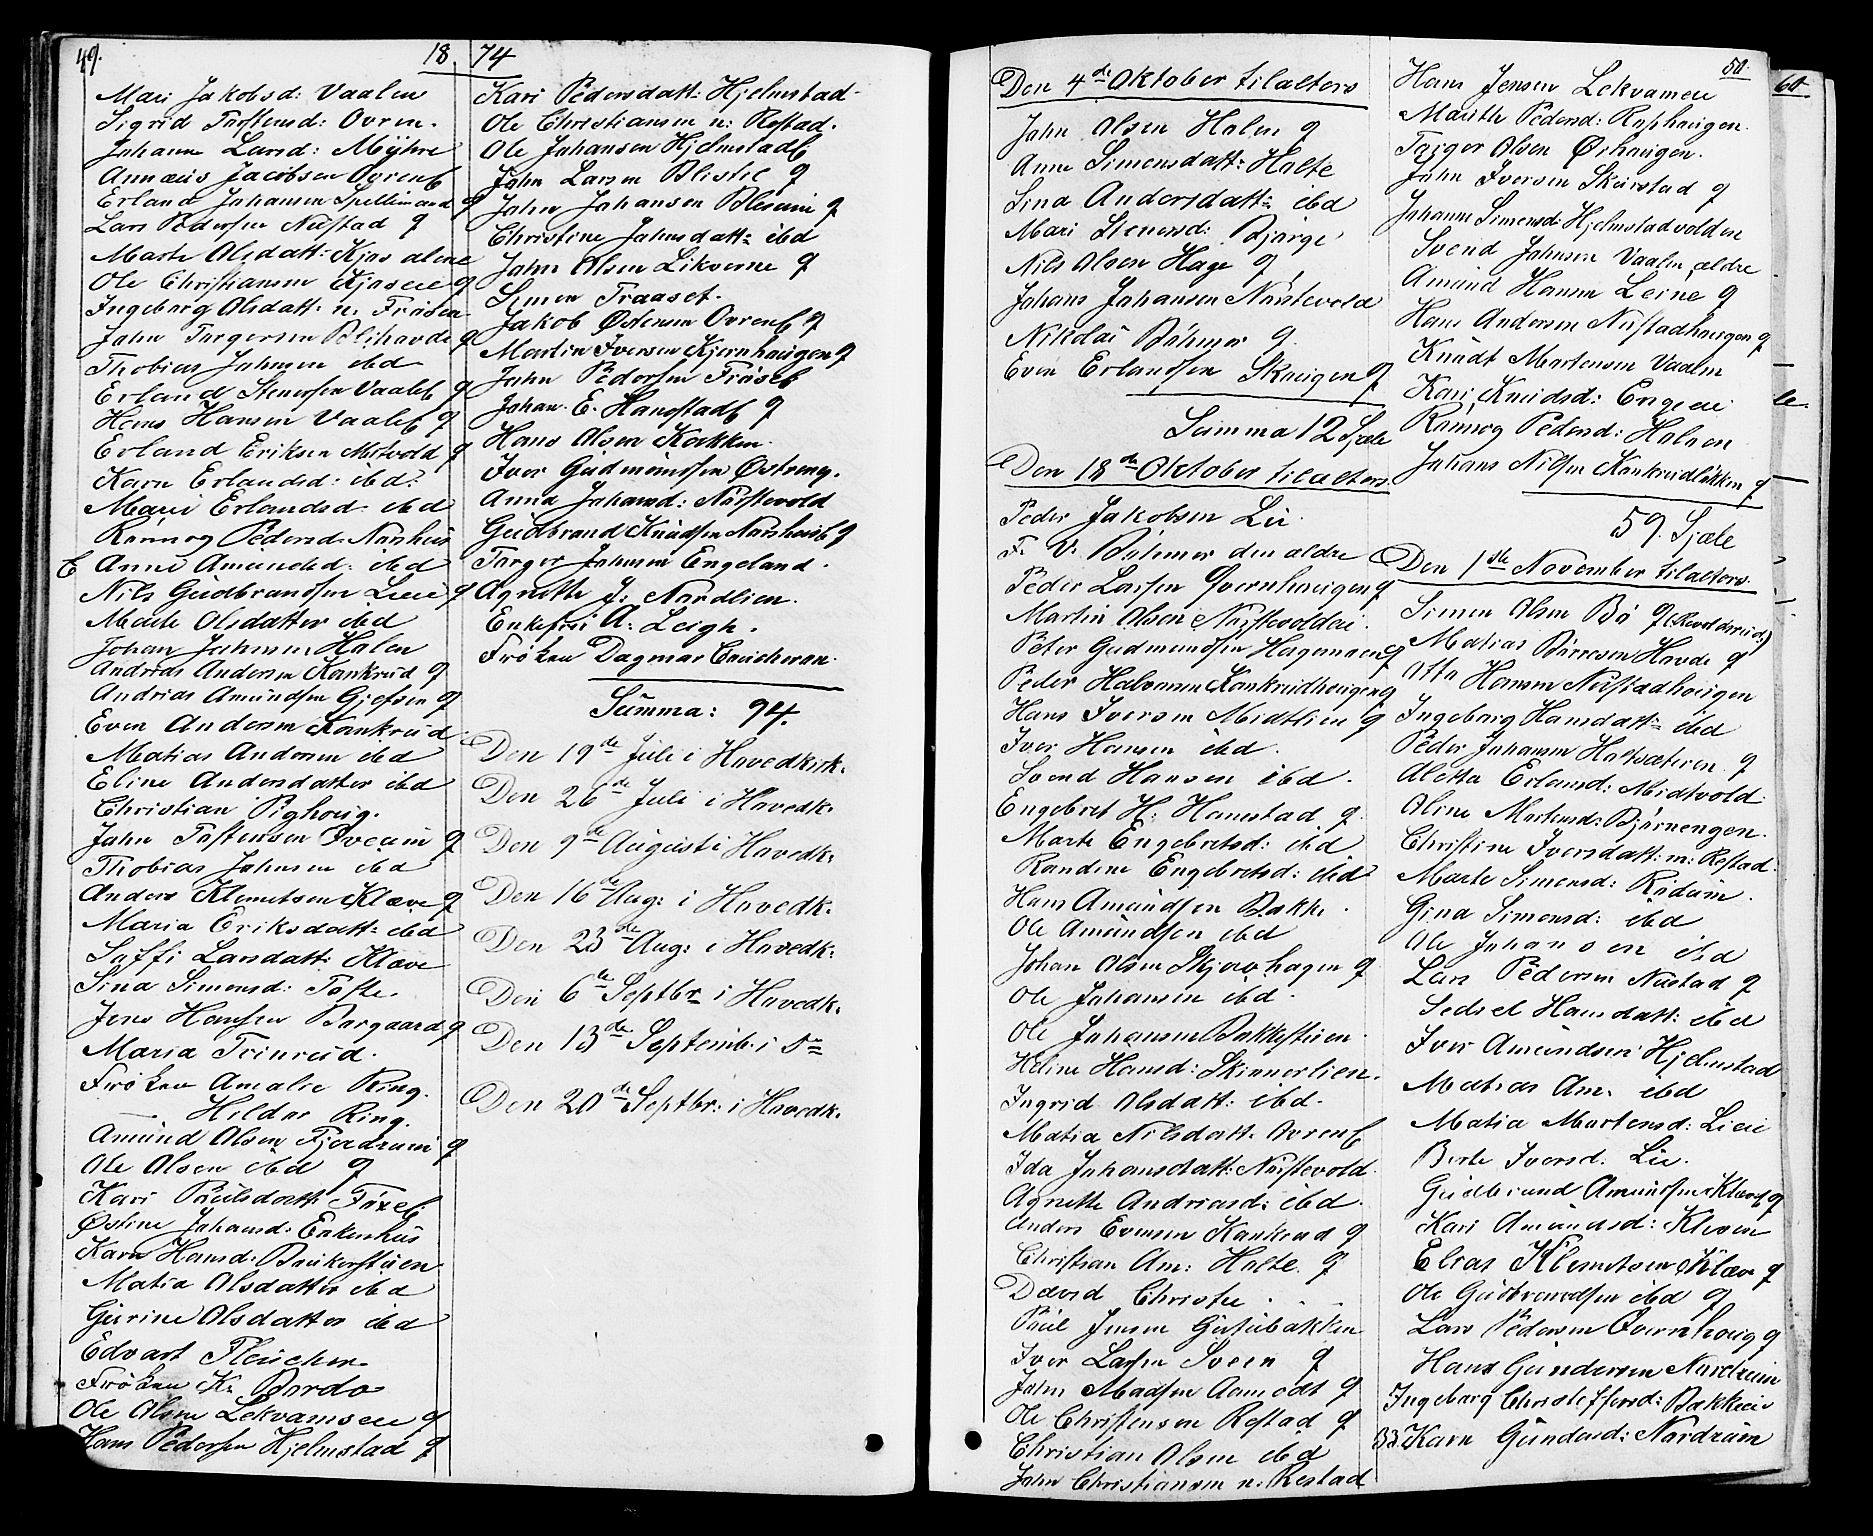 49.
18 74
Mari Jakobsd: Vaalen
Sigrid Tostensd: Ovren.
Johann Larsd: Myhre
Annæus Jacobsen Ovrenb
Erland Johansen Spellmand g
Lars Pedersen Nustad g
Marte Olsdatt: Kjos alene
Ole Christiansen Kjoseie g
Ingeborg Olsdatt: n: Frøsen
John Torgersen Blihovde g
Thobias Johnsen ibd
Erland Stenersen Vaaleb g
Hans Hansen Vaaleb g
Erland Eriksen Mitvold g
Karn Erlandsd: ibd:
Mari Erlandsd. ibd
Rønnog Pedersd. Narshus
E Anne Amundsd: ibd
Nils Gudbrandsen Lieie g
Marte Olsdatter ibd
Johan Johnsen Halen
Andreas Andersen Kankrud g
Andreas Amundsen Gjefsen g
Even Andersen Kankrud
Matias Andersen ibd
Eline Andersdatter ibd
Christian Pighoug.
John Tostensen Sveum g
Thobias Johnsen ibd
Anders Klemetsen Klæve g
Maria Eriksdatt: ibd
Saffi Larsdatt: Klæve
Sina Simensd: Tofte.
Jens Hansen Borgaard g
Maria Trinrud.
Frøken Amalie Ring.
— Hilda Ring.
Amund Olsen Fjerdrum g
Ole Olsen ibd g
Kari Paulsdatt:
Østine Johansd: Enkenhus
Karn Hansd: Baukerstuen
Matia Olsdatter ibd
Gurine Olsdatter ibd
Edvart Fleischer
Frøken K: Bordo
Ole Olsen Lekvamseie g
Hans Pedersen Hjelmstad g
Kari Pedersdatt: Hjelmstad.
Ole Christiansen n: Rostad.
Ole Johansen Hjelmstadb
John Larsen Blistie g
John Johansen Blesum g
Christine Johnsdatt: ibd
John Olsen g
Simen Traaset.
Jakob Østensen Ovrenb g
Martin Iversen Kjernhaugen g
John Pedersen Frøseb
Johan E. Hansstadb g
Hans Olsen Kokken.
Iver Gudmundsen Østreng.
Anna Johansd: Nustevold
Gudbrand Knudsen Narshusb g
Torger Johnsen Engeland.
Agnethe J: Nordlien.
Enkefru A: Leigh.
Frøken Dagmar
Summa: 94.
Den 19de Juli i Hovedkirk.
Den 26de Juli i Hovedk:
Den 9de August i Hovedk:
Den 16de Aug: i Hovedk:
Den 23de Aug: i Hovedk:
Den 6te Septbr i Hovedk:
Den 13de Septemb: i do
Den 20de Septbr: i Hovedk.
Den 4de Oktober tilalters
John Olsen Halen g
Anne Simensdatt: Holte
Sina Andersdatt: ibd
Mari Stenersd: Bjørge
Nils Olsen Hage g
Johans Johansen Nustevold
Nikolai Bøhmer g
Even Erlandsen Skaugen g
Summa 12 Sjæle
Den 18de Oktober tilalters
Peder Jakobsen Lie.
F. V. Bøhmer den ældre
Peder Larsen Qvernhaugen g
Martin Olsen Nustevoldei.
Peter Gudmundsen Hagemoen g
Peder Halvorsen Kankrudhougen g
Hans Iversen Midtlien g
Iver Hansen ibd.
Svend Hansen ibd.
Engebret H: Hamstad g
Marte Engebretsd: ibd
Randine Engebretsd: ibd
Hans Amundsen Bakke.
Ole Amundsen ibd
Johan Olsen Skjævhagen g
Ole Johansen ibd.
Ole Johansen Bakkestuen.
Heline Hansd: Skinnerlien.
Ingrid Olsdatt: ibd.
Matia Nilsdatt: Ovrenb
Ida Johansdatt: Nustevold.
Agnethe Andreasd: ibd.
Anders Evensen Kankrud g
Christian Am: Holte. g
David Christie.
Paul Jensen Gutubakken
Iver Larsen Sveen g
John Madsen Aamodt g
Ole Christensen Rostad g
Christian Olsen ibd
John Christiansen n: Rostad
50.
Hans Jensen Lekvameie
Marithe Pedersd: Rophaugen.
Torger Olsen Ørhaugen.
John Iversen Skurstad g
Johanne Simensd: Hjelmstadvolden
Svend Johnsen Vaalen ældre
Amund Hansen Leine g
Hans Andersen Nustadhaugen g
Knudt Martensen Vaalen
Kari Knudsd: Engeei
Rønnog Pedersd: Halven
Johans Nilsen Kankrudløkken g
59. Sjæle
Den 1ste November tilalters.
Simen Olsen Bø g
Matias Børresen Hovde g
Otto Hansen Nustadhougen
Ingeborg Hansdatt: ibd
Peder Johansen Holtsæteren g
Aletta Erlandsd: Midtvold.
Oline Martensd: Bjørnengen.
Christine Iversdatt: n: Rostad.
Marte Simensd: Rudum.
Gina Simensd: ibd
Ole Johansen ibd
Lars Pedersen Nustad g
Sedsel Hansdatt: ibd
Iver Amundsen Hjelmstad
Matias Am. ibd
Matia Martensd: Lieie
Berte Iversd: Lie.
Gudbrand Amundsen Klæveb g
Kari Amundsd: Kleven
Elias Klemetsen Klæve g
Ole Gudbrandsen ibd g
Lars Pedersen Qvernhoug g
Hans Gundersen Nordrum
Ingeborg Christoffersd: Bakkeie
33. Karn Gundersd: Nordrum
60.